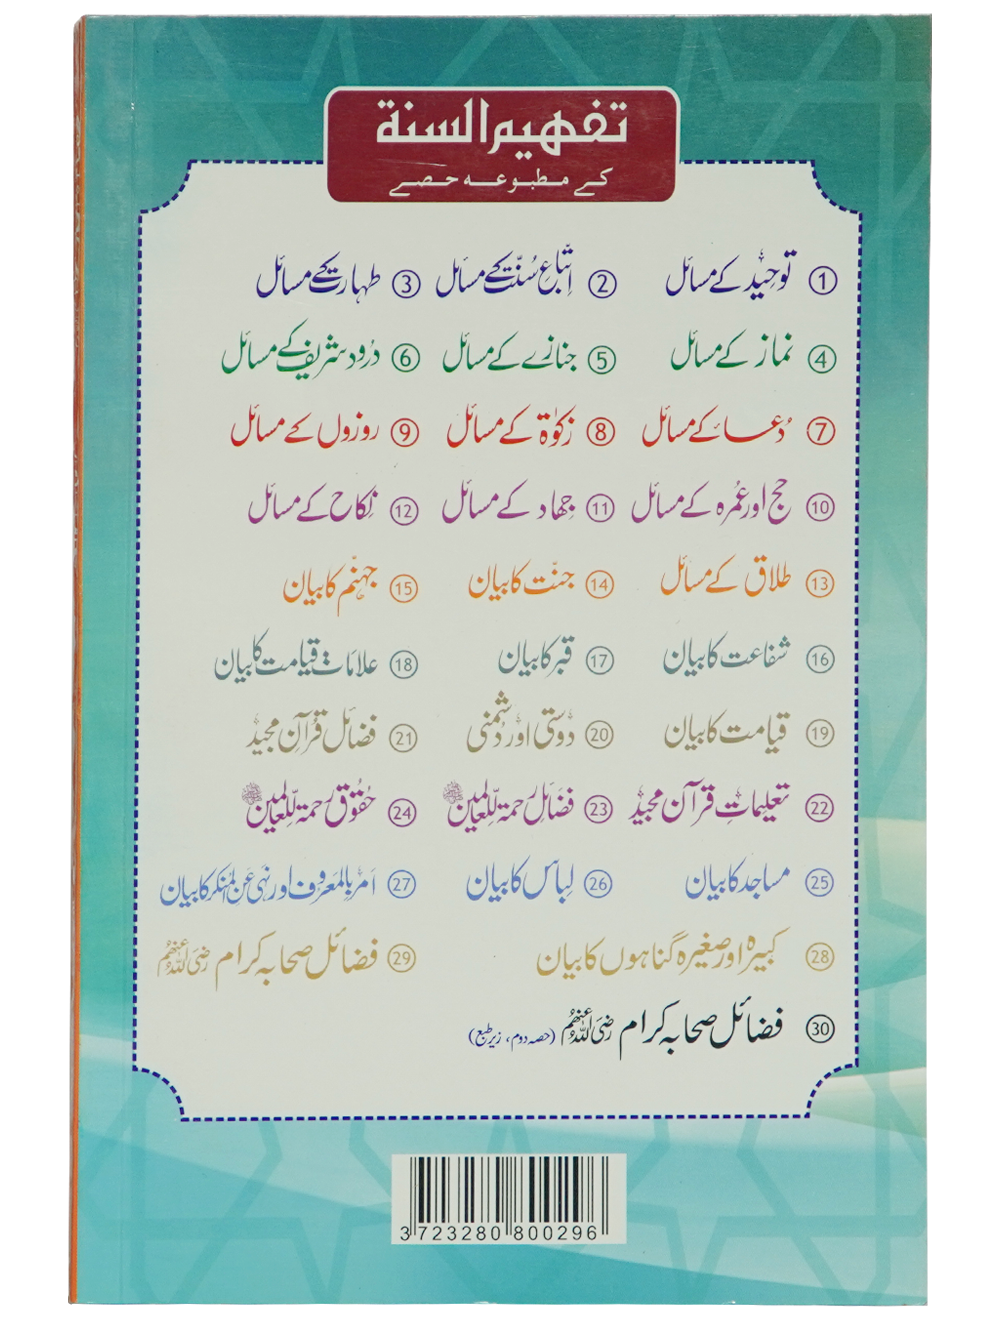 تفہیم السنۃ
کے مطبوعہ حصے
① توحید کے مسائل ② اتباع سُنّت کے مسائل ③ طہارت کے مسائل
④ نماز کے مسائل ⑤ جنازے کے مسائل ⑥ درود شریف کے مسائل
⑦ دُعا کے مسائل ⑧ زکوٰۃ کے مسائل ⑨ روزوں کے مسائل
⑩ حج اور عُمرہ کے مسائل ⑪ جہاد کے مسائل ⑫ نکاح کے مسائل
⑬ طلاق کے مسائل ⑭ جنّت کا بیان ⑮ جہنّم کا بیان
⑯ شفاعت کا بیان ⑰ قبر کا بیان ⑱ علاماتِ قیامت کا بیان
⑲ قیامت کا بیان ⑳ دوستی اور دُشمنی ㉑ فضائل قُرآن مجید
㉒ تعلیماتِ قرآن مجید ㉓ فضائل رحمۃ لّلعالمین ﷺ ㉔ حقوق رحمۃ لّلعالمین ﷺ
㉕ مساجد کا بیان ㉖ لباس کا بیان ㉗ امر بالمعروف اور نہی عن المنکر کا بیان
㉘ کبیرہ اور صغیرہ گناہوں کا بیان ㉙ فضائل صحابہ کرام رضی اللہ عنہم
㉚ فضائل صحابہ کرام رضی اللہ عنہم (حصہ دوم، زیر طبع)
3723280800296